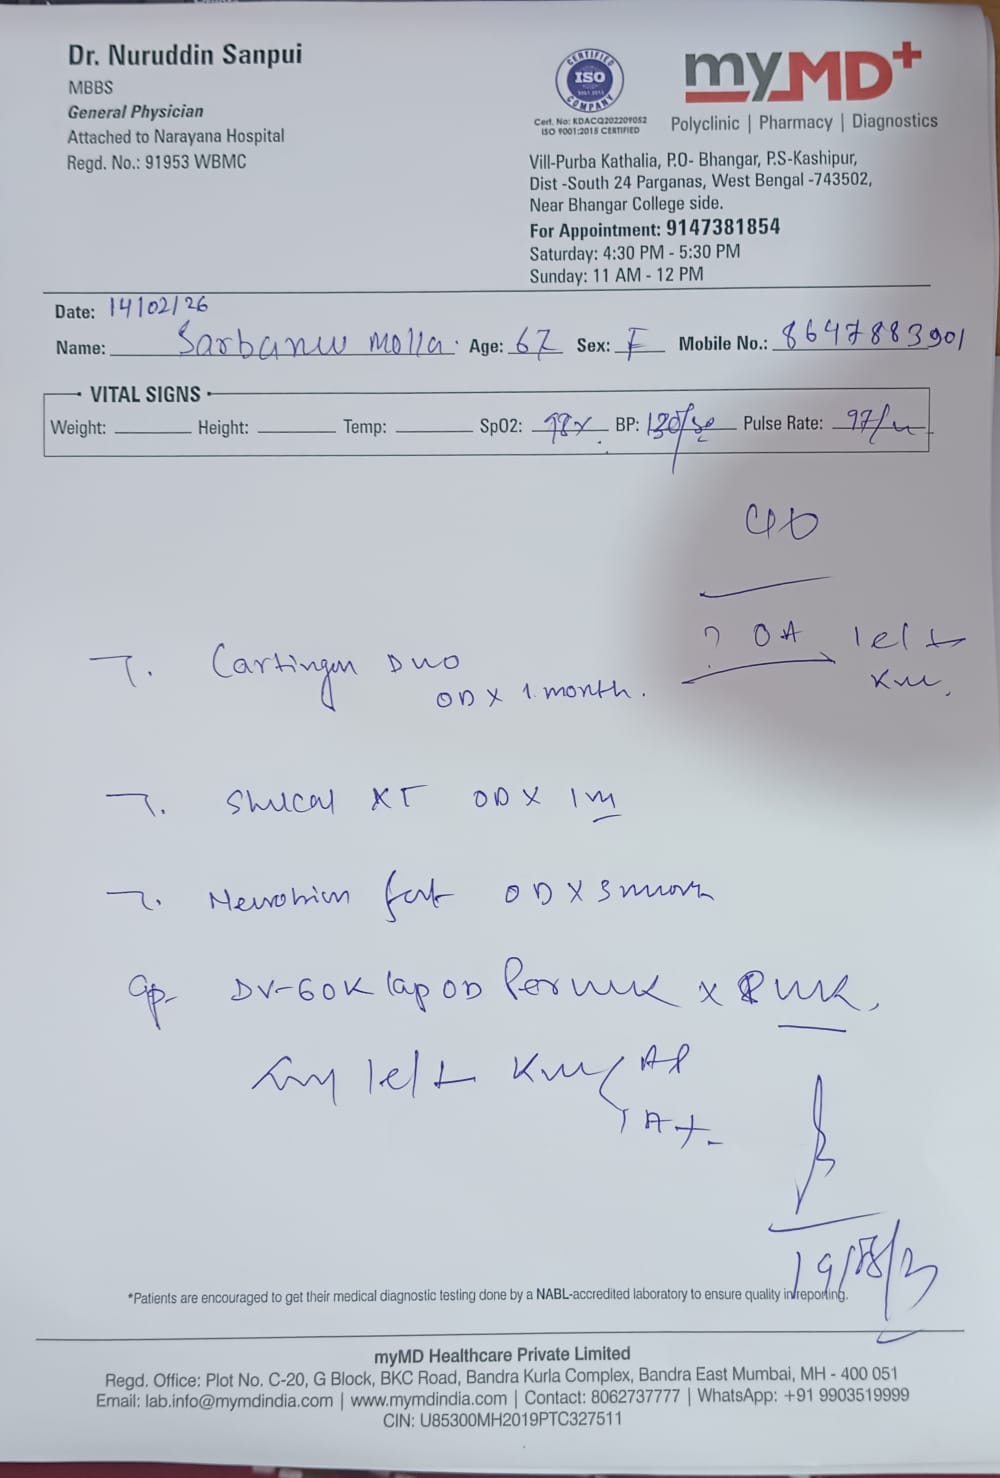 Dr. Nuruddin Sanpui
MBBS
General Physician
Attached to Narayana Hospital
Regd. No.: 91953 WBMC
CERTIFIED
ISO
9001:2015
COMPANY
Cert. No: KDACQ202209052
ISO 9001:2015 CERTIFIED
myMD+
Polyclinic | Pharmacy | Diagnostics
Vill-Purba Kathalia, P.O- Bhangar, P.S-Kashipur,
Dist -South 24 Parganas, West Bengal -743502,
Near Bhangar College side.
For Appointment: 9147381854
Saturday: 4:30 PM - 5:30 PM
Sunday: 11 AM - 12 PM
Date: 14/02/26
Name: Sarbanu Molla. Age: 67 Sex: F Mobile No.: 8647883901
VITAL SIGNS
Weight: Height: Temp: SpO2: 98% BP: 130/80 Pulse Rate: 97/m
? OA left
Knee
T. Cartingen Duo
OD X 1 month.
T. Shelcal XT OD X 1m
T. Neurobion fort OD X 3 month
Cap DV-60K cap OD Per week x 8 week,
left Knee AP
Lat.
*Patients are encouraged to get their medical diagnostic testing done by a NABL-accredited laboratory to ensure quality in reporting.
myMD Healthcare Private Limited
Regd. Office: Plot No. C-20, G Block, BKC Road, Bandra Kurla Complex, Bandra East Mumbai, MH - 400 051
Email: lab.info@mymdindia.com | www.mymdindia.com | Contact: 8062737777 | WhatsApp: +91 9903519999
CIN: U85300MH2019PTC327511